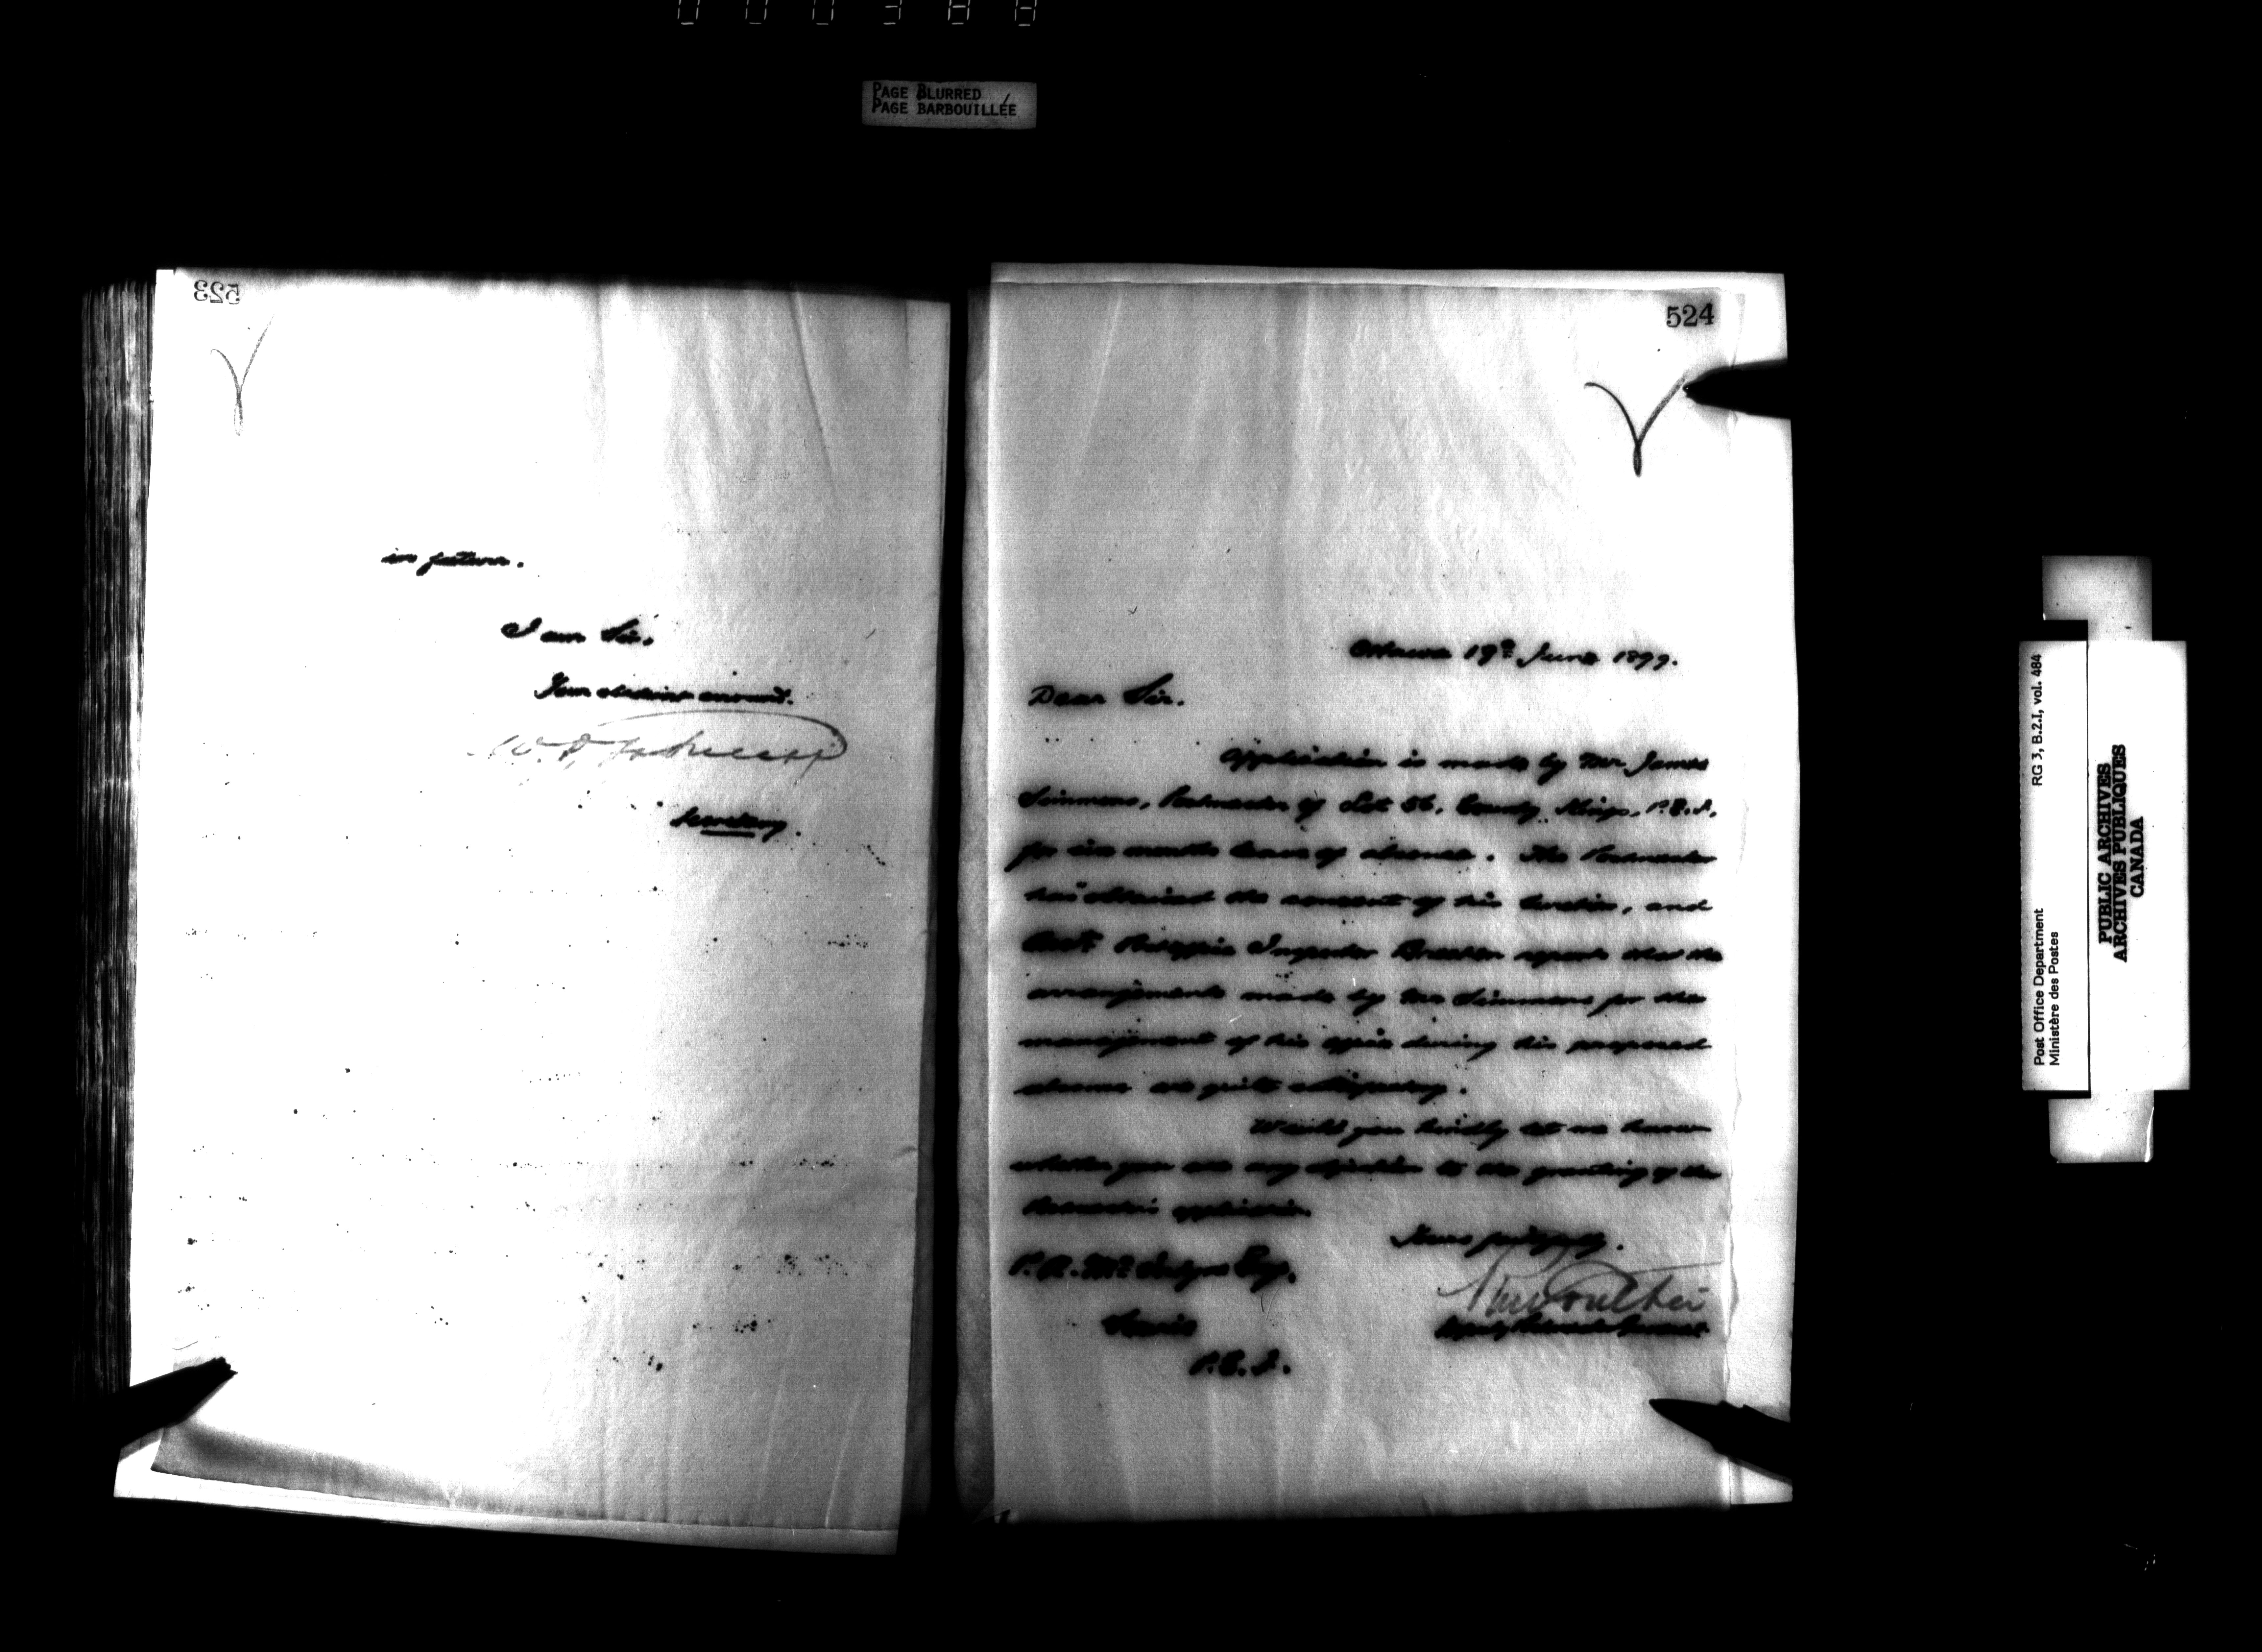 PAGE BLURRED
PAGE BARBOUILLÉE
523
in future.
I am Sir.
Your obedient servant.
Secretary.
524
Ottawa 19th June 1899.
Dear Sir.
Application is made by Mr James
Simmons, Postmaster of Lot 56, County Kings, P.E.I.
for six months leave of absence. The Postmaster
has obtained the consent of his sureties, and
Asst. Postoffice Inspector Brecken reports that the
arrangements made by Mr Simmons for the
management of his office during his proposed
absence are quite satisfactory.
Would you kindly let me know
whether you see any objection to the granting of the
Postmaster's application.
Yours faithfully.
R M Coulter
Deputy Postmaster General.
P.E.I.
Post Office Department
Ministère des Postes
RG 3, B.2.I, vol. 484
PUBLIC ARCHIVES
ARCHIVES PUBLIQUES
CANADA